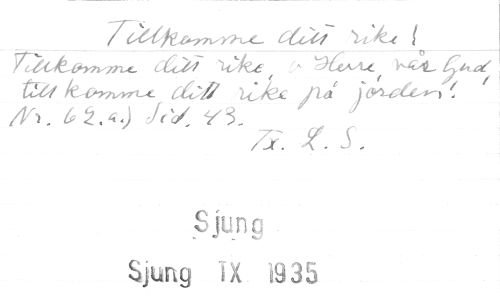 Tillkomme ditt rike!
Tillkomme ditt rike, o Herre, vår Gud,
tillkomme ditt rike på jorden!
Nr. 62.a.) Sid. 43.
Tx. L. S.
Sjung
Sjung IX 1935